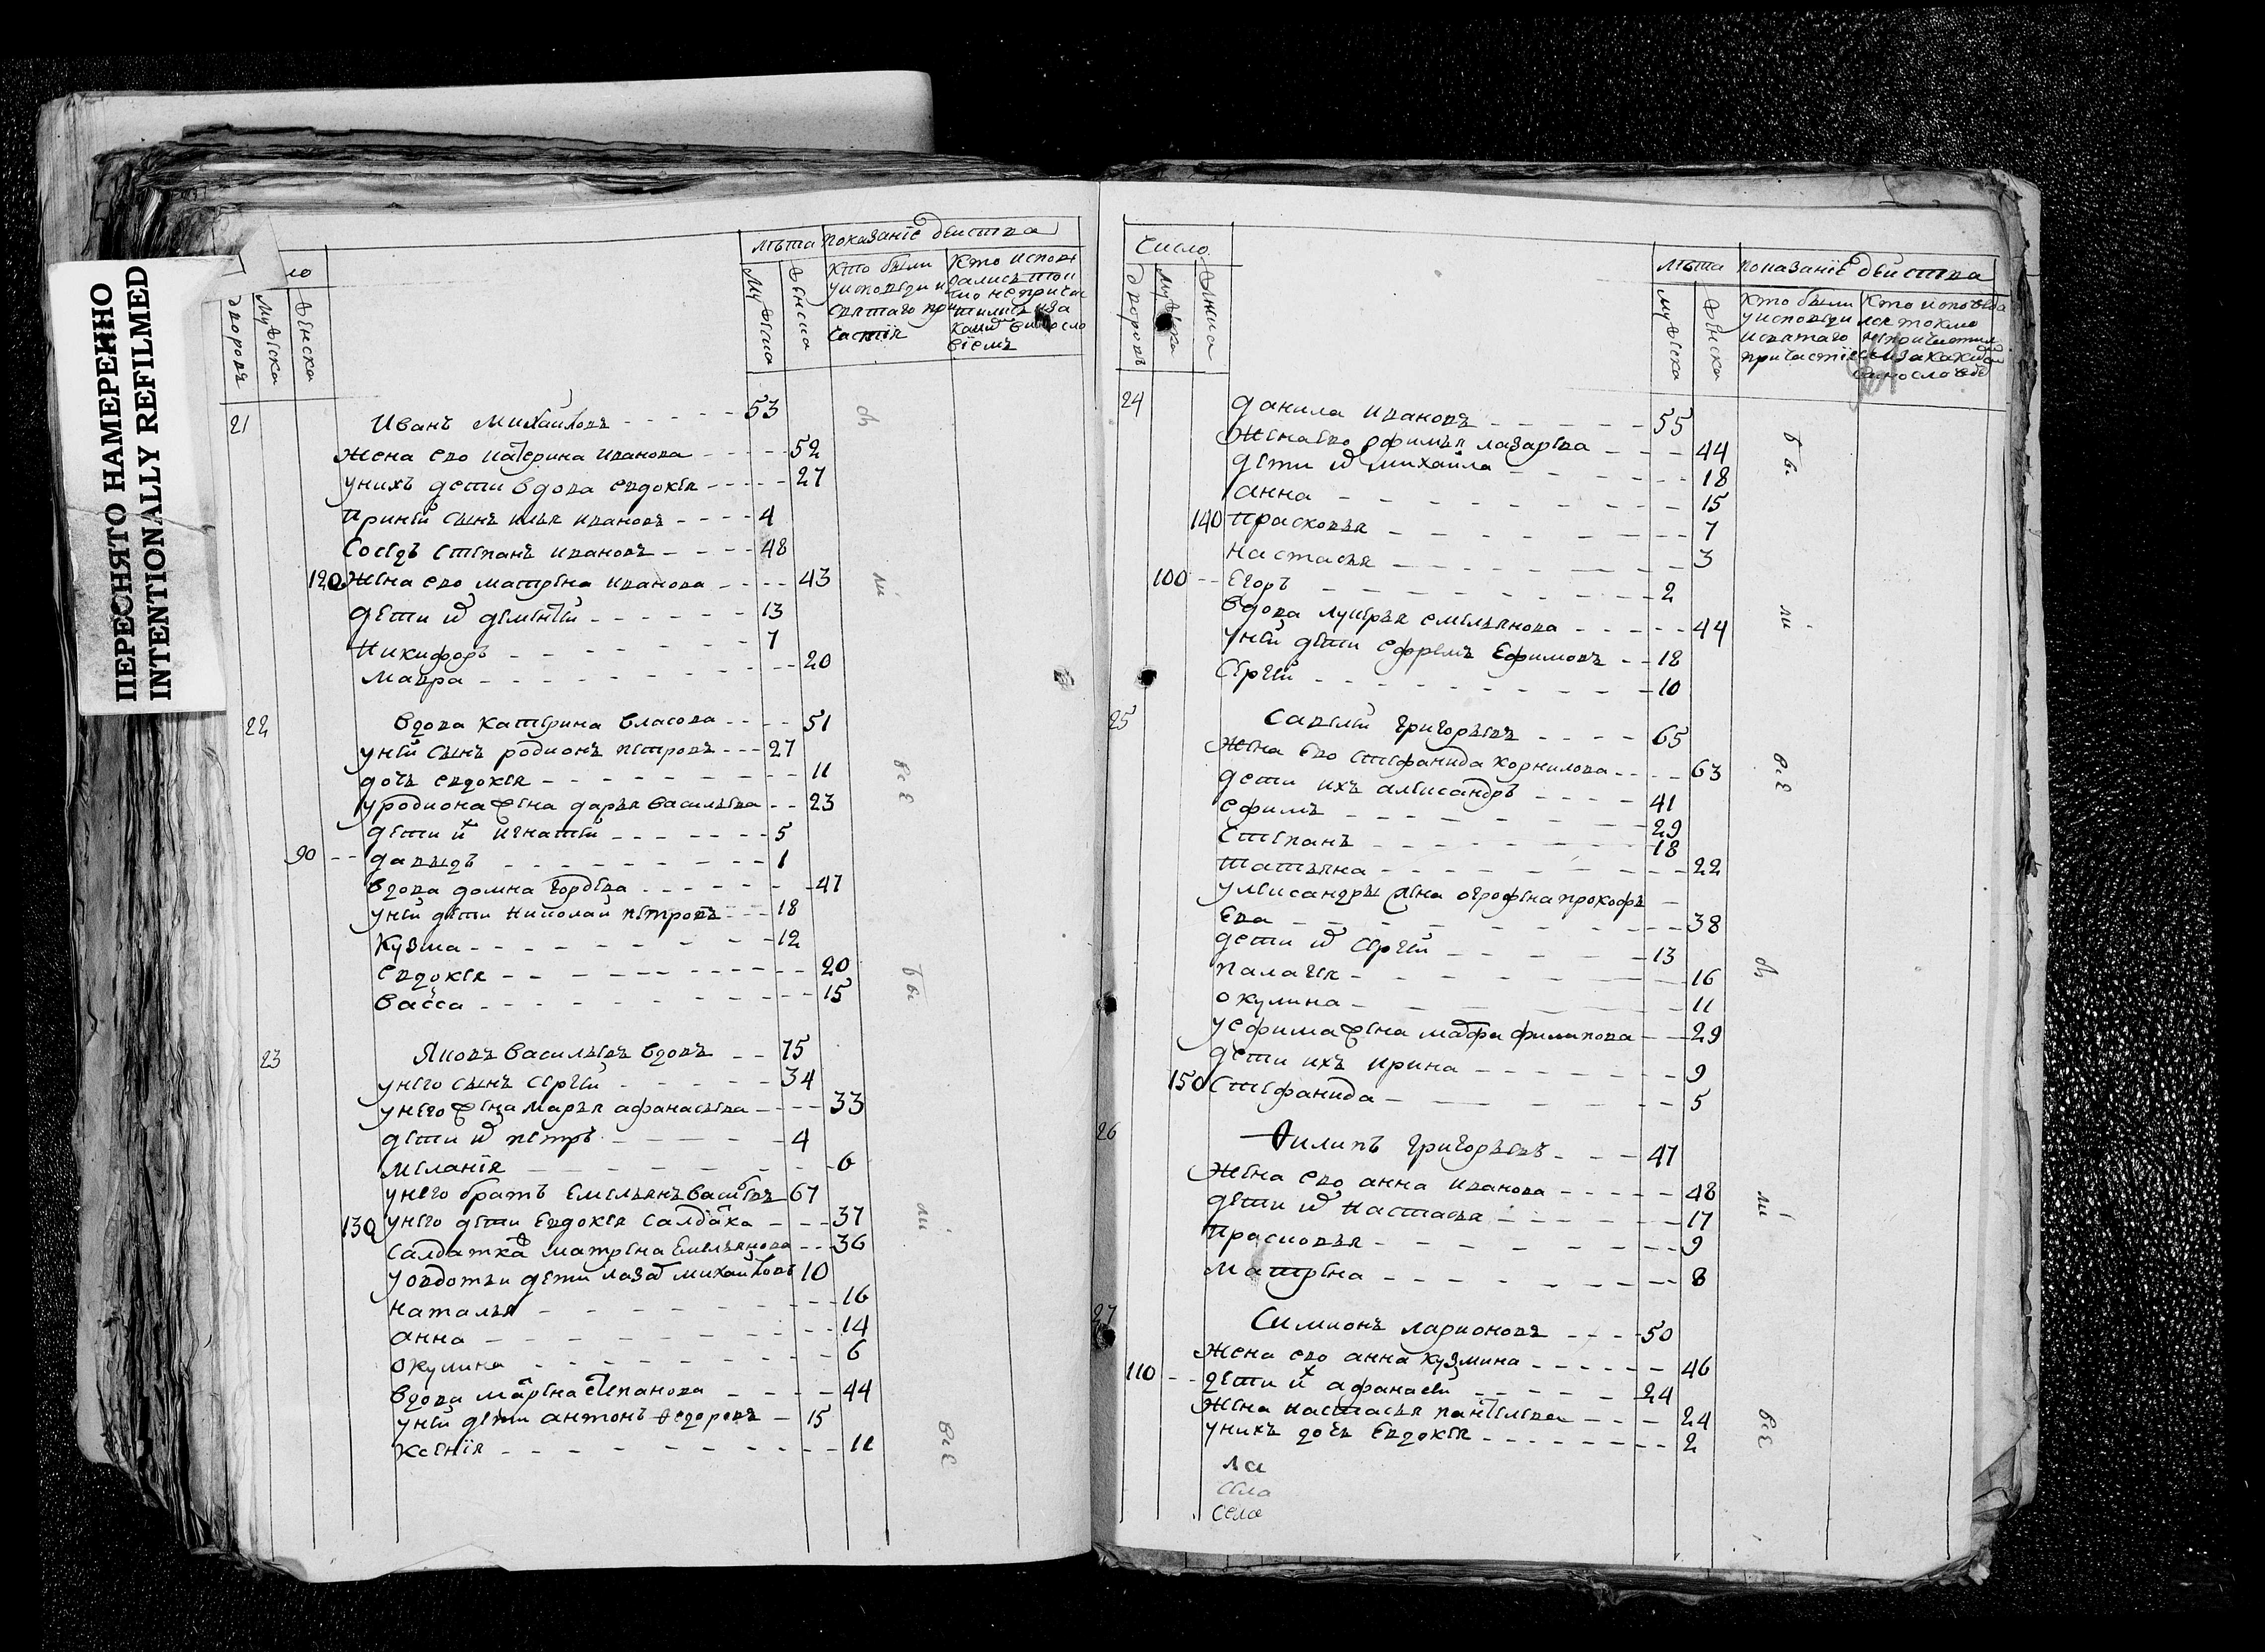 ПЕРЕСНЯТО НАМЕРЕННО
INTENTIONALLY REFILMED
лѣта показаніе действа
дворовъ
мужеска
женска
21 Иванъ Михайловъ 53
жена ево катерина иванова 52
унихъ дети вдова евдокея 27
приней сынъ илья ивановъ 4
соседъ степанъ ивановъ 48
120 жена ево матрена иванова 43
дети их дементей 13
никифоръ 7
мавра 20
22 вдова катерина власова 51
уней сынъ родионъ петровъ 27
дочь евдокея 11
уродиона жена дарья васильева 23
дети их игнатей 5
90 давыдъ 1
вдова домна гордева 47
уней дети николай петровъ 18
кузма 12
евдокея 20
васса 15
23 Яковъ васильевъ вдовъ 75
унего сынъ сергей 34
унего жена марья афанасьева 33
дети их петръ 4
меланія 6
унего братъ емельянъ васильевъ 67
130 унего дети евдокея салдатка 37
салдатка матрена емельянова 36
уовдотьи дети лаза михайловъ 10
наталья 16
анна 14
окулина 6
вдова марена степанова 44
уней дети антонъ федоровъ 15
ксенія 11
Число
дворовъ
мужеска
женска
лѣта показаніе действа
мужеска
женска
24 данила ивановъ 55
жена ево офимья лазарева 44
дети их михайла 18
анна 15
140 прасковья 7
настасья 3
100 егоръ 2
вдова лукерья емельянова 44
уней дети ефремъ ефимовъ 18
сергей 10
25 Савелей григорьевъ 65
жена ево стефанида корнилова 63
дети ихъ александръ 41
ефимъ 29
степанъ 18
татьяна 22
уалександры жена огрофена прокофь
ева 38
дети их сергей 13
палагея 16
окулина 11
уефима жена марфа филипова 29
дети ихъ ирина 9
150 стефанида 5
26 Филипъ григорьевъ 47
жена ево анна иванова 48
дети их настасья 17
прасковья 9
матрена 8
27 Симионъ ларионовъ 50
жена ево анна кузмина 46
110 дети их афанасей 24
жена настасья пантелева 24
унихъ дочь евдокея 2
ла
села
село